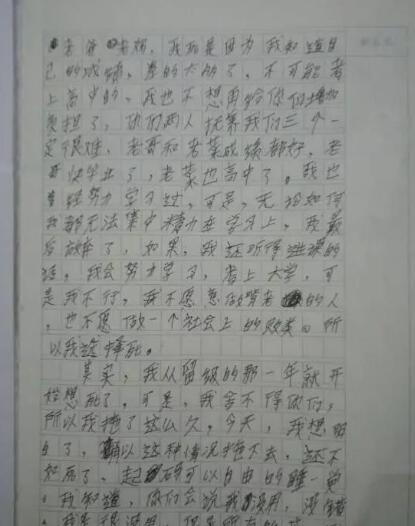 老爸老妈，我就是因为我知道自
己的成绩，差的太多了，不可能考
上高中的，我也不想再给你们增加
负担了，你们两人抚养我们三个一
定很难，老哥和老菜成绩都好，老
哥快毕业了，老菜也高中了。我也
曾经努力学习过，可是，无论如何
我都无法集中精力在学习上，我最
后放弃了，如果，我还听得进课的
话，我会努力学习，考上大学，可
是我不行，我不愿意做啃老的人
，也不愿做一个社会上的败类。所
以我选择死。
其实，我从留级的那一年就开
始想死了，可是，我舍不得你们，
所以我拖了这么久，今天，我想明
白了，以这种情况拖下去，还不
如死了，起码可以自由的睡一觉
。我知道，你们会说我没用，没错